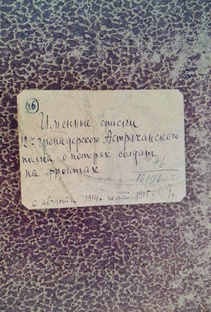 46
Именные списки
12 гренадерского Астраханского
полка о потерях солдат
на фронтах
46
16196
с августа 1914 по 1915 г.